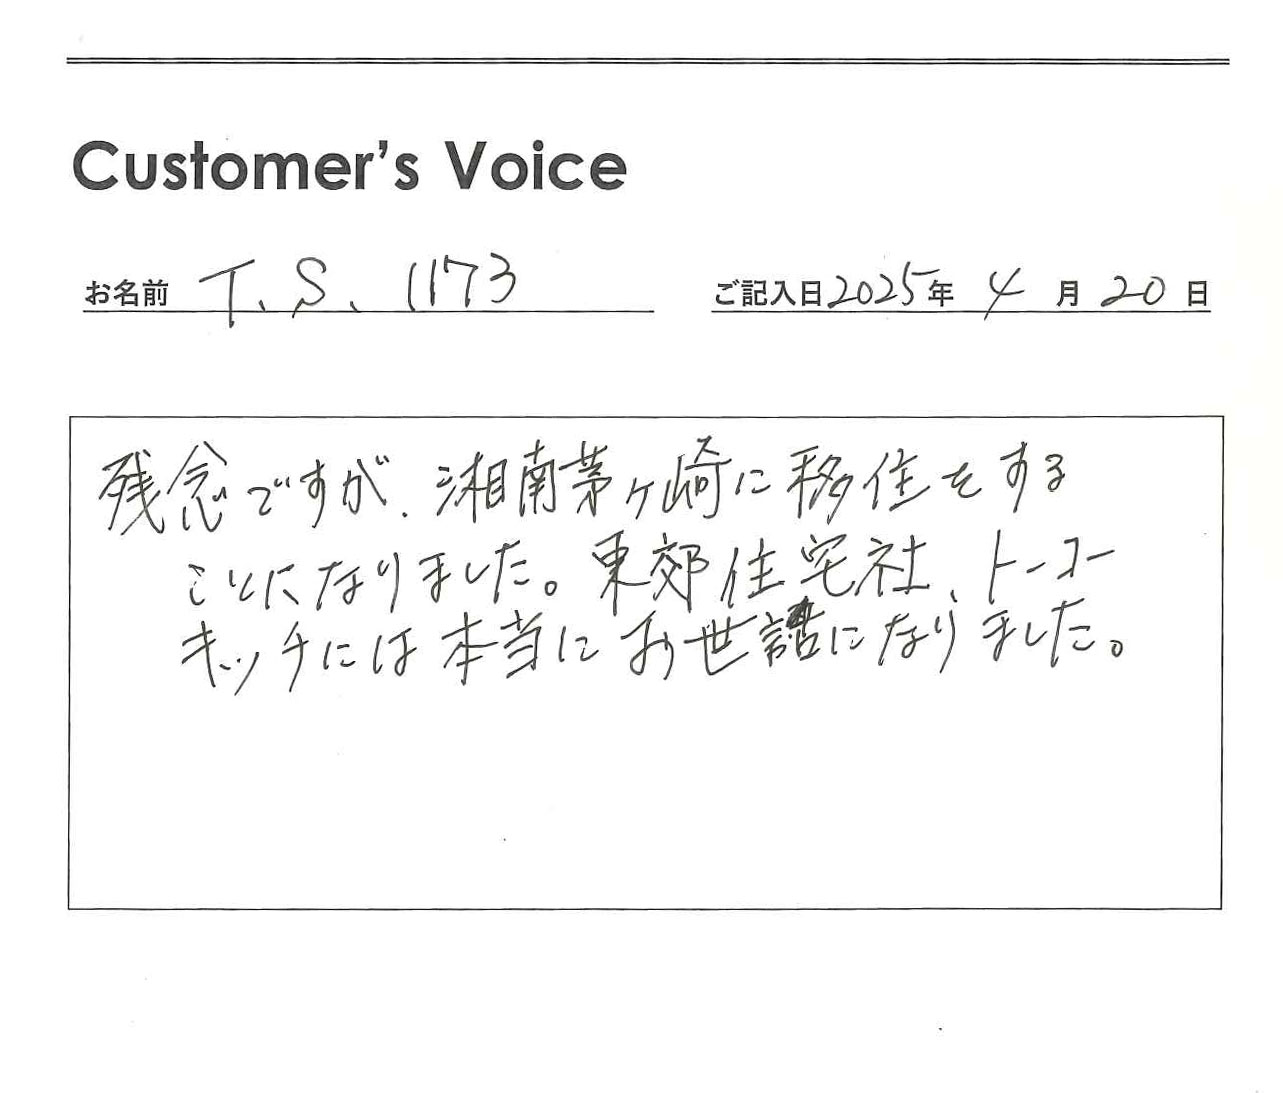 Customer's Voice
お名前 T.S. 1173 ご記入日2025年4月20日
残念ですが、湘南茅ヶ崎に移住をする
ことになりました。東郊住宅社、トーコー
キッチには本当にお世話になりました。